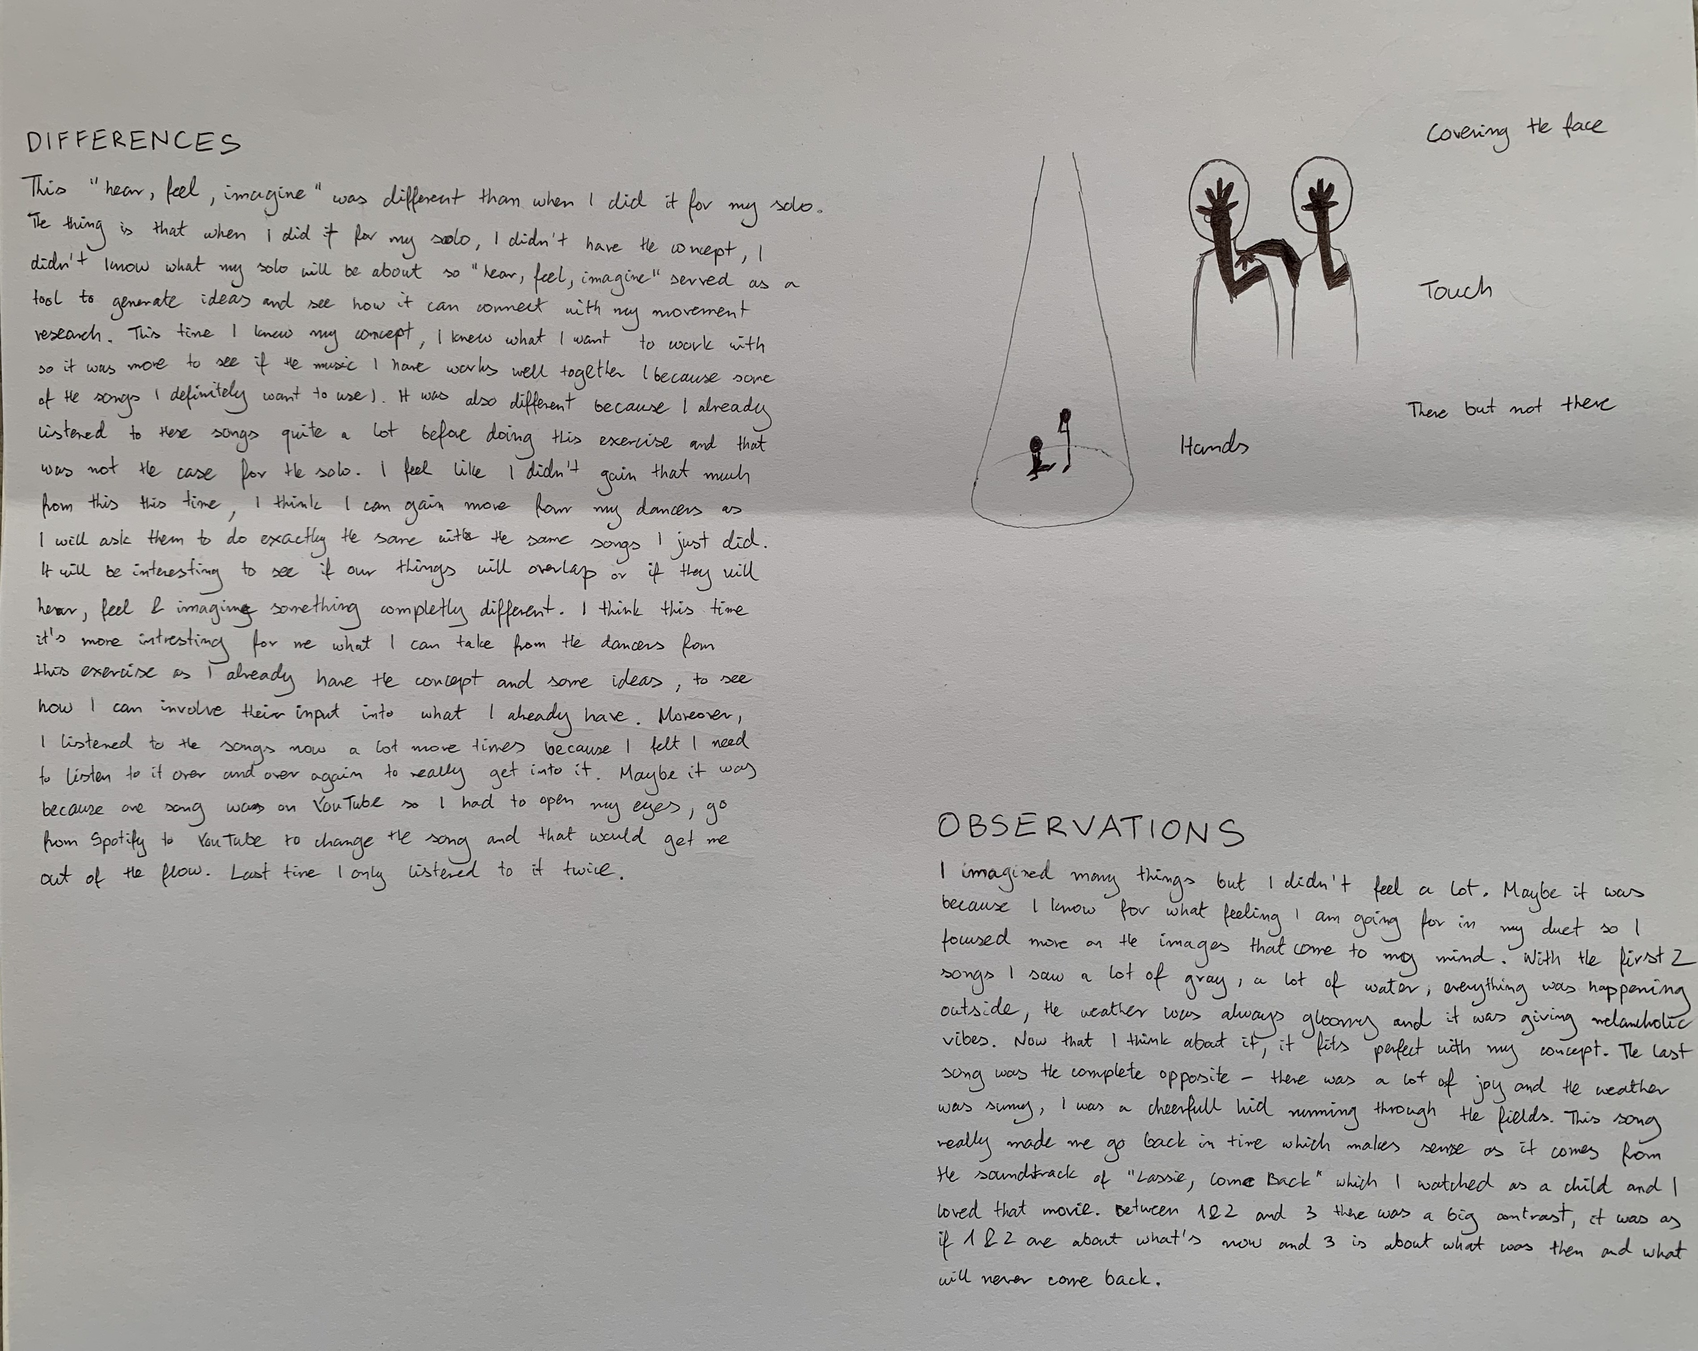 DIFFERENCES
This "hear, feel, imagine" was different than when I did it for my solo.
The thing is that when I did it for my solo, I didn't have the concept, I
didn't know what my solo will be about so "hear, feel, imagine" served as a
tool to generate ideas and see how it can connect with my movement
research. This time I knew my concept, I knew what I want to work with
so it was more to see if the music I have works well together (because some
of the songs I definitely want to use). It was also different because I already
listened to these songs quite a lot before doing this exercise and that
was not the case for the solo. I feel like I didn't gain that much
from this this time, I think I can gain more from my dancers as
I will ask them to do exactly the same with the same songs I just did.
It will be interesting to see if our things will overlap or if they will
hear, feel & imagine something completly different. I think this time
it's more intresting for me what I can take from the dancers from
this exercise as I already have the concept and some ideas, to see
how I can involve their input into what I already have. Moreover,
I listened to the songs now a lot more times because I felt I need
to listen to it over and over again to really get into it. Maybe it was
because one song was on YouTube so I had to open my eyes, go
from Spotify to YouTube to change the song and that would get me
out of the flow. Last time I only listened to it twice.
Covering the face
Touch
There but not there
Hands
OBSERVATIONS
I imagined many things but I didn't feel a lot. Maybe it was
because I know for what feeling I am going for in my duet so I
focused more on the images that come to my mind. With the first 2
songs I saw a lot of gray, a lot of water, everything was happening
outside, the weather was always gloomy and it was giving melancholic
vibes. Now that I think about it, it fits perfect with my concept. The last
song was the complete opposite - there was a lot of joy and the weather
was sunny, I was a cheerfull kid running through the fields. This song
really made me go back in time which makes sense as it comes from
the soundtrack of "Lassie, Come Back" which I watched as a child and I
loved that movie. Between 1&2 and 3 there was a big contrast, it was as
if 1&2 are about what's now and 3 is about what was then and what
will never come back.